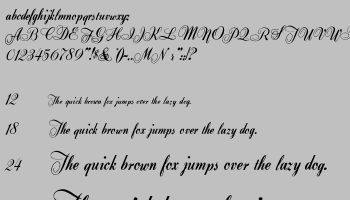 abcdefghijklmnopqrstuvwxyz
ABCDEFGHIJKLMNOPQRSTUVWX
0123456789
12 The quick brown fox jumps over the lazy dog.
18 The quick brown fox jumps over the lazy dog.
24 The quick brown fox jumps over the lazy dog.